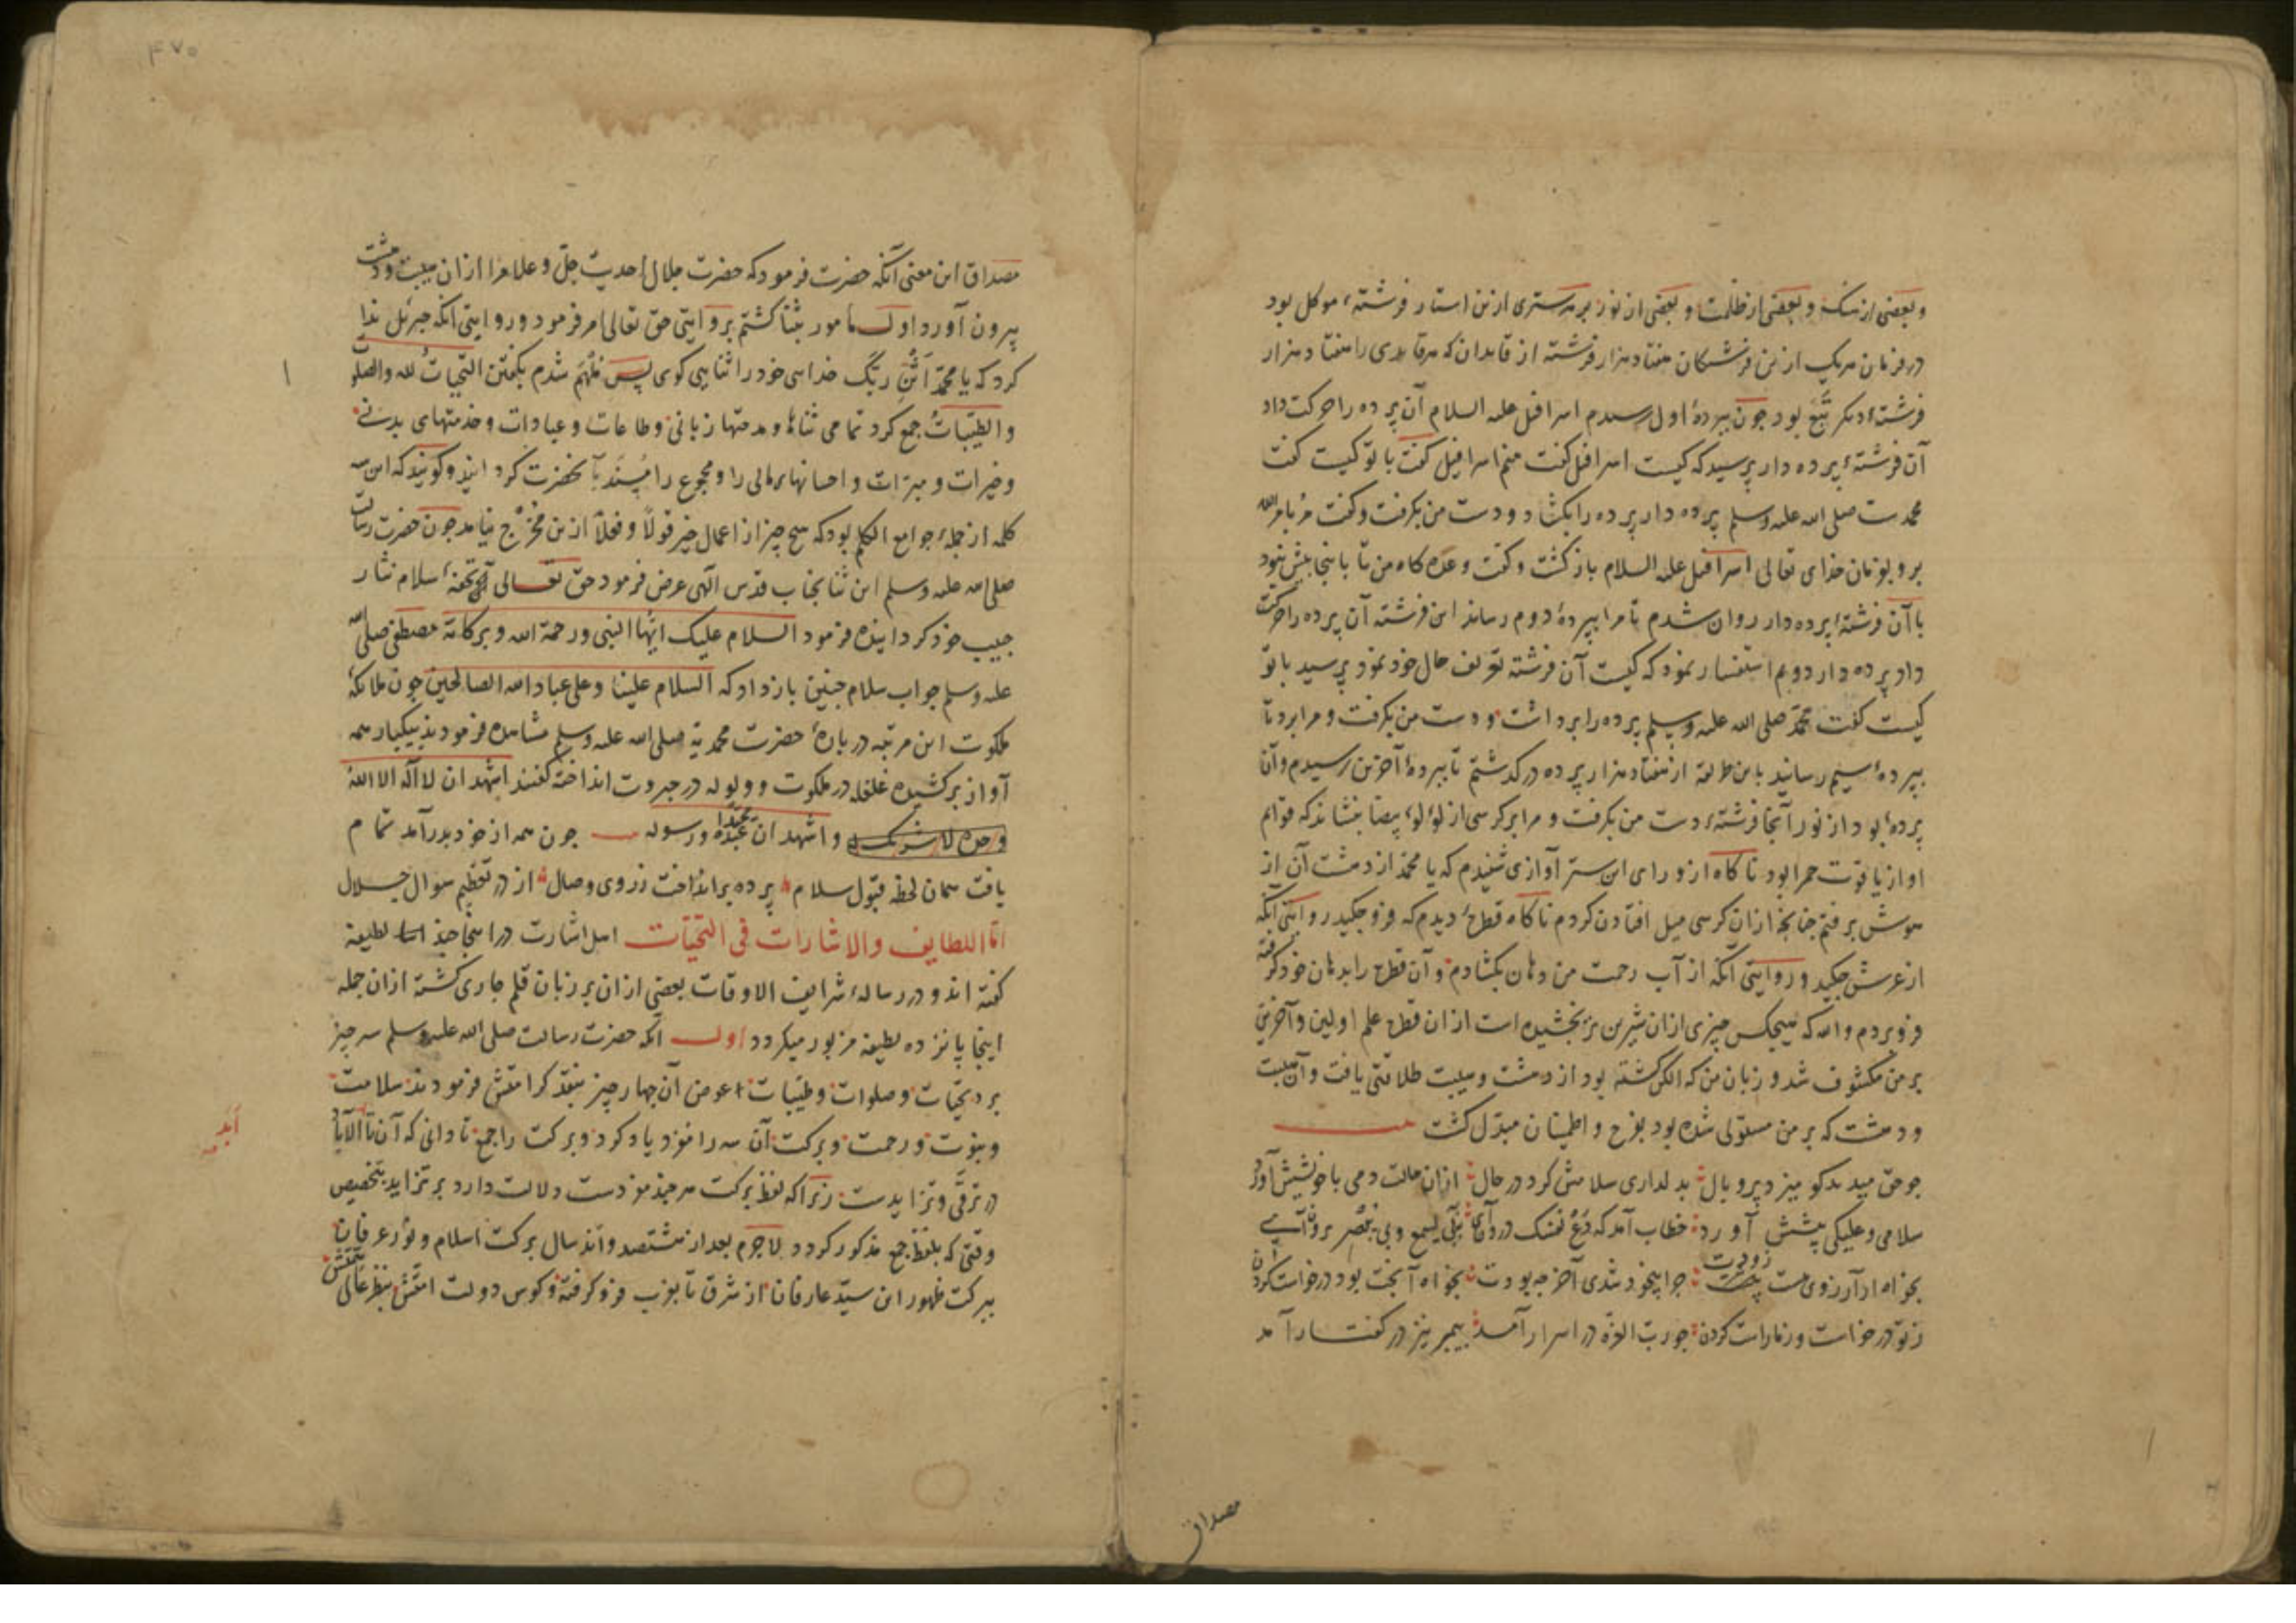 و بعضی از مسک و بعضی از ظلمت و بعضی از نور بر هر ستری ازین استار فرشتهٔ موکل بود
در فرمان هر یک ازین فرشتکان هفتاد هزار فرشته از قایدان که هر قایدی را هفتاد هزار
فرشتهٔ دیکر تبع بود چون بپردهٔ اول رسیدم اسرافیل علیه السلام آن پرده را حرکت داد
آن فرشتهٔ پرده دار پرسید که کیست اسرافیل کفت منم اسرافیل کفت با تو کیست کفت
محمد ست صلی الله علیه وسلم پرده دار پرده را بکشاد و دست من بکرفت و کفت مر بامر الله
برو بفرمان خدای تعالی اسرافیل علیه السلام باز کشت و کفت وعده کاه من تا باینجا بیش نبود
با آن فرشتهٔ پرده دار روان شدم تا مرا بپردهٔ دوم رساند این فرشته آن پرده را حرکت
داد پرده دار دوم استفسار نمود که کیست آن فرشته تعریف حال خود نمود پرسید با تو
کیست کفت محمد صلی الله علیه وسلم پرده را برداشت و دست من بکرفت و مرا برد تا
بپردهٔ سیم رسانید باین طریقه از هفتاد هزار پرده در کذشتم تا بپردهٔ آخرین رسیدم و آن
پردهٔ بود از نور آنجا فرشتهٔ دست من بکرفت و مرا بر کرسی از لؤلؤ بیضا بنشاند که قوایم
او از یاقوت حمرا بود ناکاه از ورای این ستر آوازی شنیدم که یا محمد از دهشت آن از
هوش برفتم چنانچه ازان کرسی میل افتادن کردم ناکاه قطرهٔ دیدم که فرو چکید روایتی آنکه
از عرش چکید و روایتی آنکه از آب رحمت من دهان بکشادم و آن قطره را بدهان خود کرفته
فرو بردم والله که هیچکس چیزی ازان شیرین تر نچشیده است ازان قطره علم اولین و آخرین
بر من مکشوف شد و زبان من که الکن کشته بود از دهشت و هیبت طلاقتی یافت و آن هیبت
و دهشت که بر من مستولی شده بود بفرح و اطمینان مبدل کشت
چو حق میدید کو میزد پر و بال بدلداری سلامش کرد در حال ازان حالت دمی با خویشش آورد
سلامی و علیکی پیشش آورد خطاب آمد که دع نفسک در آی بی یسمع و بی یبصر برون آی
بخواه ار آرزوی هست زودت چرا بیخود شدی آخر چه بودت بخواه آنچت بود درخواست کردن
ز تو درخواست وز ما راست کردن چو رب العزه در اسرار آمد پیمبر نیز در کفتار آمد
مصداق
۴۷۰
مصداق این معنی آنکه حضرت فرمود که حضرت جلال احدیت جل وعلا مرا ازان هیبت و دهشت
بیرون آورد اول مامور بثنا کشتم بروایتی حق تعالی امر فرمود و روایتی آنکه جبرئیل ندا
کرد که یا محمد اثن ربک خدای خود را ثنایی کوی پس ملهم شدم بکفتن التحیات لله والصلوات
والطیبات جمع کرد تمامی ثناها و مدحتها زبانی و طاعات و عبادات و خدمتهای بدنی
و خیرات و مبرات و احسانهای مالی را و مجموع را بحضرت کردانید و کویند که این سه
کلمه از جملهٔ جوامع الکلم بود که هیچ چیز از اعمال خیر قولا و فعلا ازین مخرج نیامد چون حضرت رسالت
صلی الله علیه وسلم این ثنا بجناب قدس الهی عرض فرمود حق تعالی تحفهٔ سلام نثار
حبیب خود کردانیده فرمود السلام علیک ایها النبی ورحمة الله وبرکاته مصطفی صلی الله
علیه وسلم جواب سلام چنین باز داد که السلام علینا وعلی عباد الله الصالحین چون ملائکهٔ
ملکوت این مرتبه در بارهٔ حضرت محمدیه صلی الله علیه وسلم مشاهده فرمودند بیکبار همه
آواز برکشیده غلغله در ملکوت و ولوله در جبروت انداخته کفتند اشهد ان لا اله الا الله
وحده لا شریک له و اشهد ان محمدا عبده ورسوله چون همه از خود بدر آمد تمام
یافت همان لحظه قبول سلام پرده برانداخت ز روی وصال از در تعظیم سوال جلال
اما اللطایف والاشارات فی التحیات اهل اشارت در اینجا چند لطیفه
کفته اند و در رسالهٔ شرایف الاوقات بعضی ازان بر زبان قلم جاری کشته ازان جمله
اینجا پانزده لطیفه مزبور میکردد اول آنکه حضرت رسالت صلی الله علیه وسلم سه چیز
برد تحیات و صلوات و طیبات عوض آن چهار چیز بنقد کرامتش فرمودند سلامت
و نبوت و رحمت و برکت آن سه را مفرد یاد کرد و برکت را جمع تا دانی که آن تا ابد الآباد
ابد
در ترقی و تزاید ست زیرا که لفظ برکت هر چند مفردست دلالت دارد بر تزاید بتخصیص
وقتی که بلفظ جمع مذکور کردد لا جرم بعد از هشتصد و اند سال برکت اسلام و نور عرفان
ببرکت ظهور این سید عارفان از شرق تا بغرب فرو کرفته و کوس دولت امتش بنظر عالی